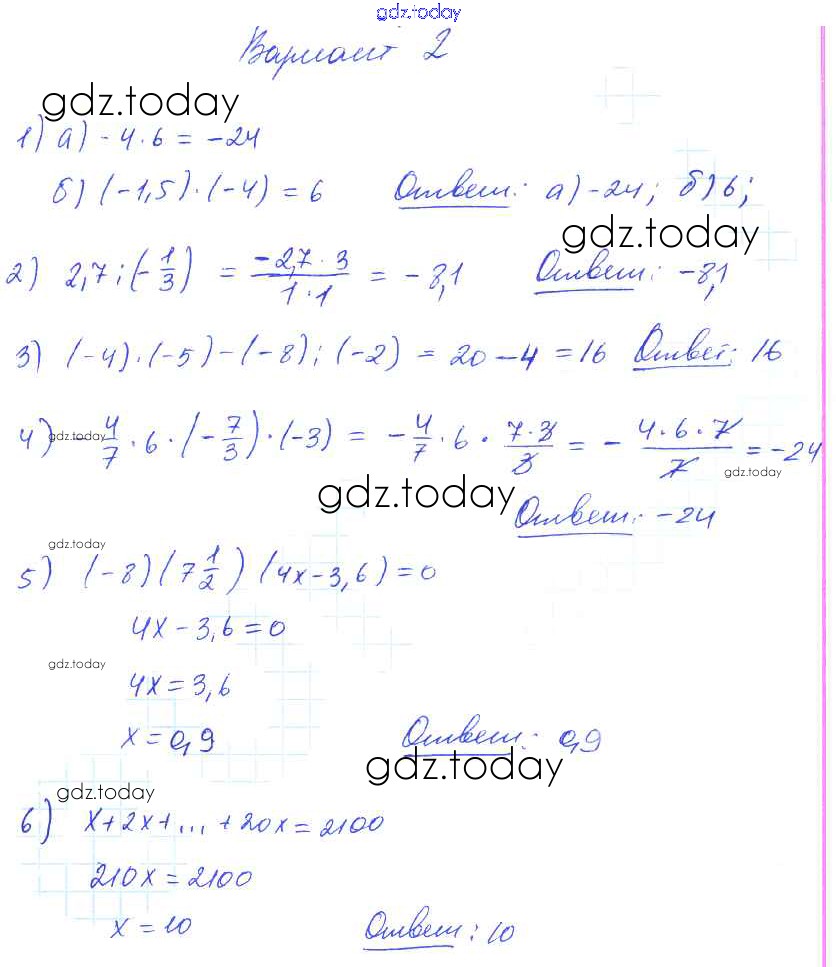 gdz.today
Вариант 2
gdz.today
1) а) -4·6 = -24
б) (-1,5)·(-4) = 6 Ответ: а) -24; б) 6;
gdz.today
2) 2,7:(-1/3) = -2,7·3/1·1 = -8,1 Ответ: -8,1
3) (-4)·(-5)-(-8):(-2) = 20-4 = 16 Ответ: 16
4) gdz.today -4/7·6·(-7/3)·(-3) = -4/7·6·7·3/3 = -4·6·7/7 = -24
gdz.today
gdz.today
Ответ: -24
gdz.today
5) (-8)(7 1/2)(4x-3,6)=0
4x-3,6=0
gdz.today
4x=3,6
x=0,9 Ответ: 0,9
gdz.today
gdz.today
6) x+2x+...+20x=2100
210x=2100
x=10 Ответ: 10